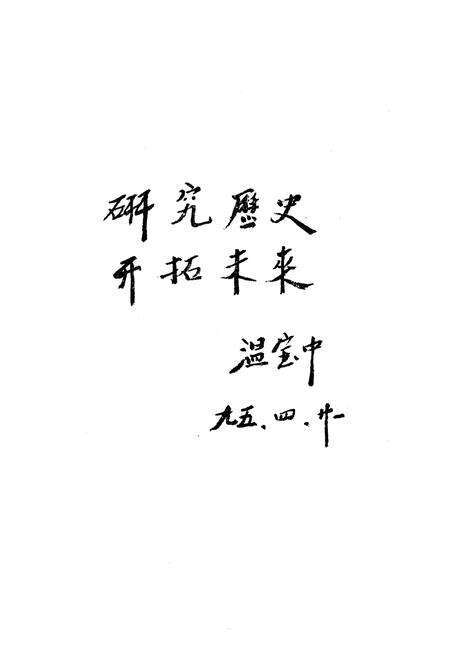 研究歷史
开拓未來
温宝中
九五.四.廿一